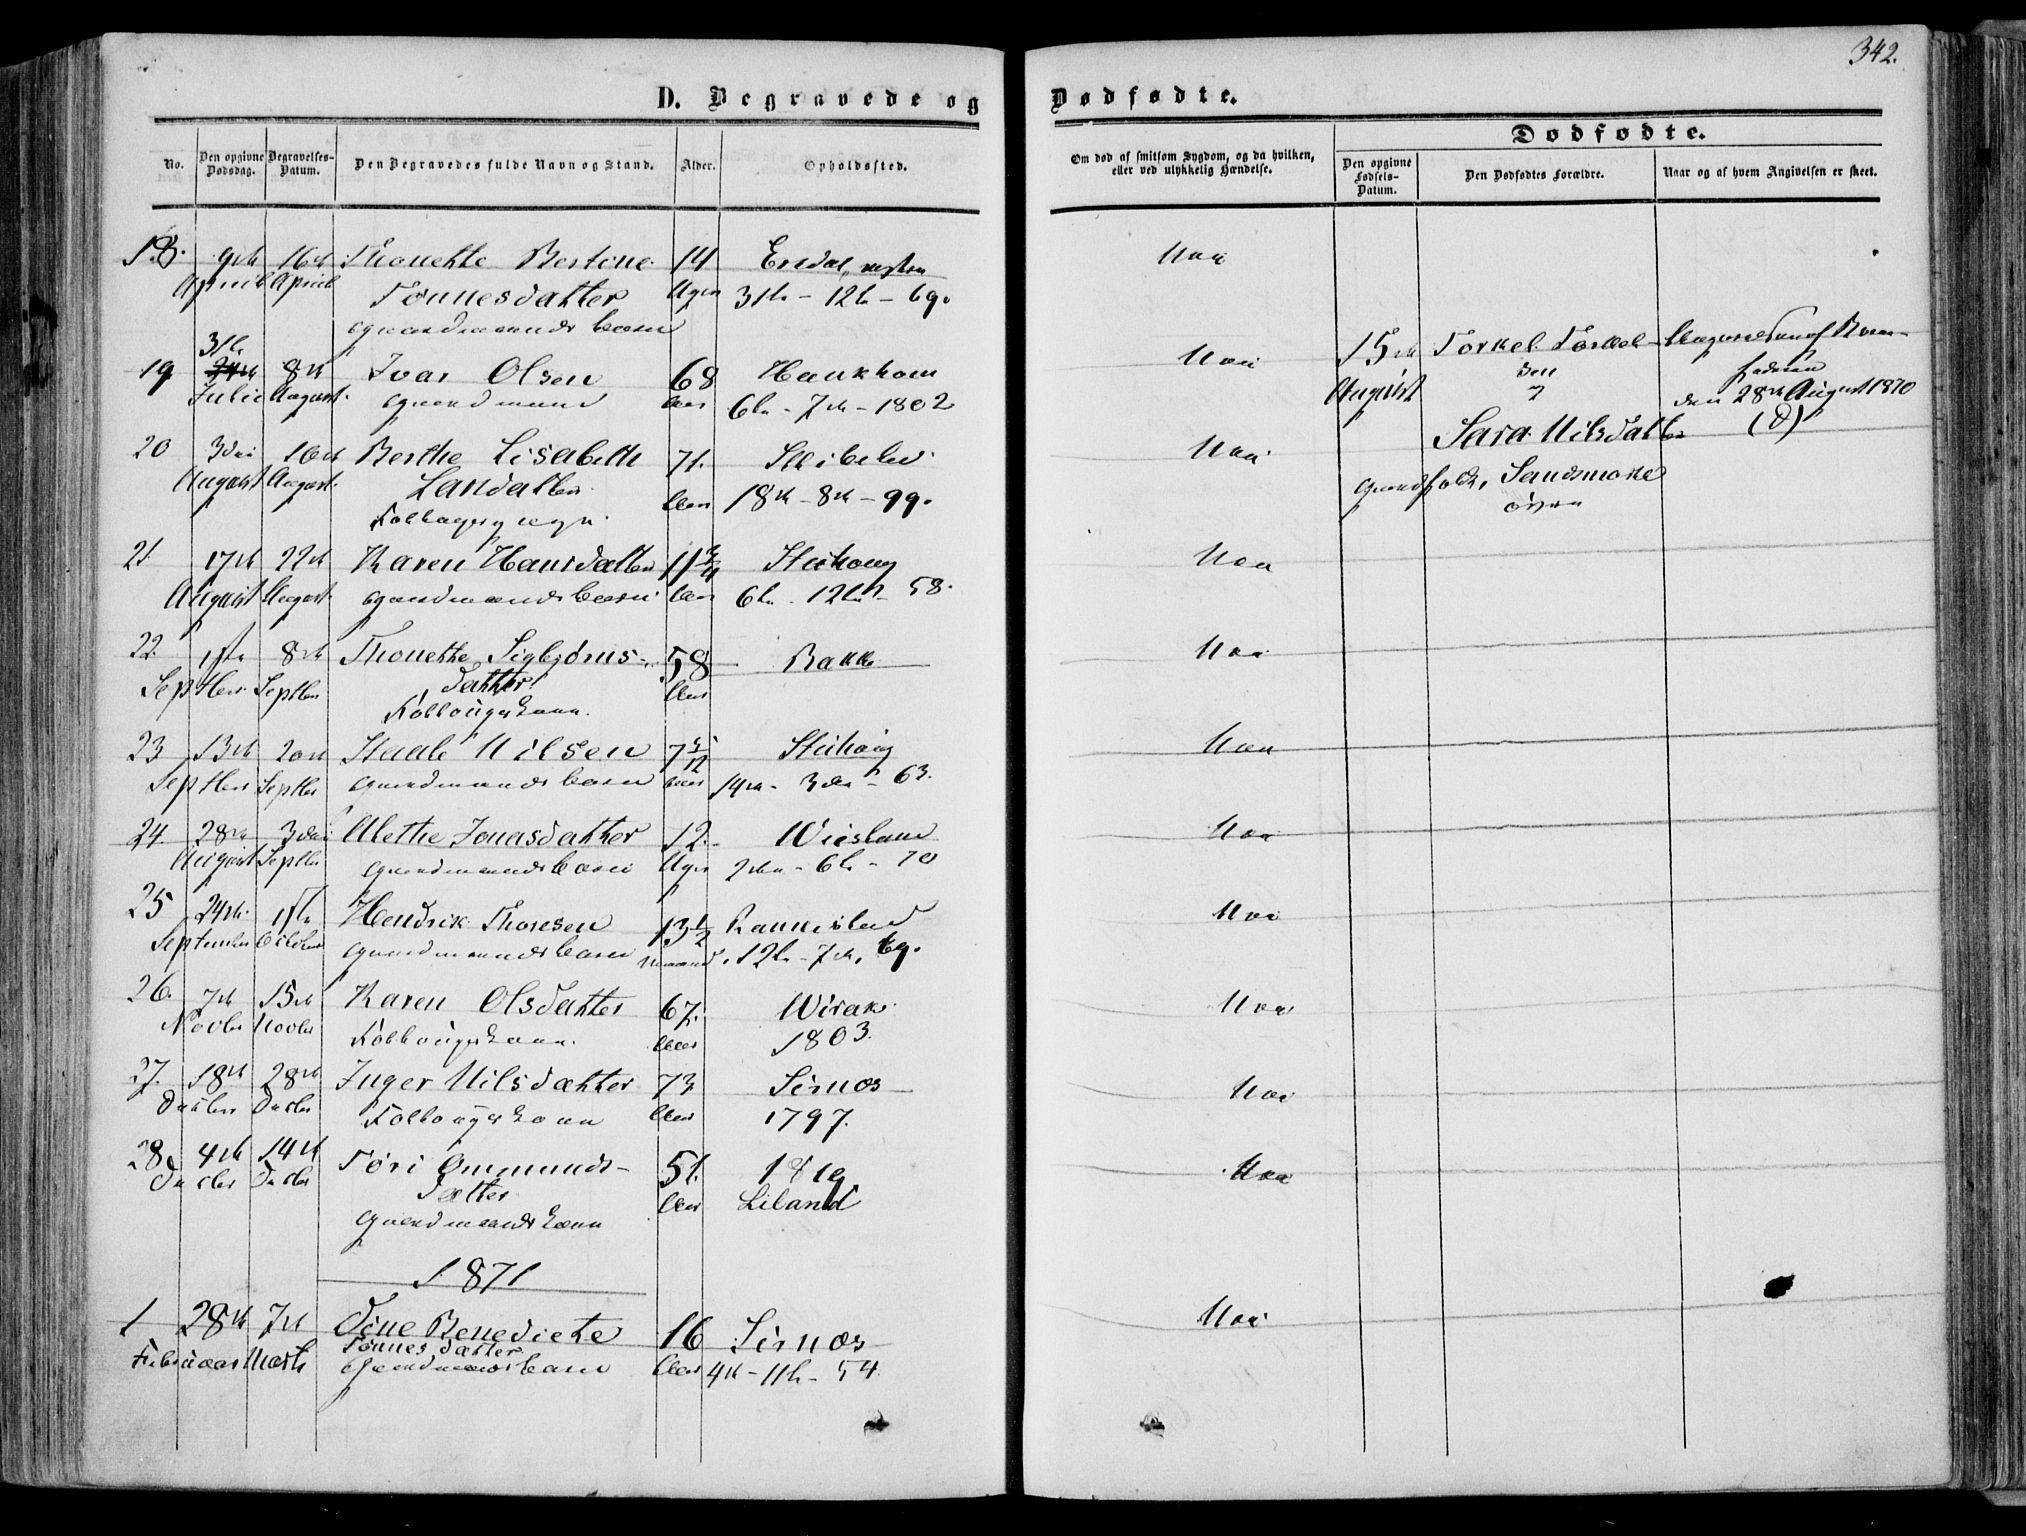 342.
D. Begravede og Dødfødte.
Dødfødte.
No.
Den opgivne Dødsdag.
Begravelses-Datum.
Den Begravedes fulde Navn og Stand.
Alder.
Opholdssted.
Om død af smitsom Sygdom, og da hvilken, eller ved ulykkelig Hændelse.
Den opgivne Fødsels-Datum.
Den Dødfødtes Forældre.
Naar og af hvem Angivelsen er skeet.
18. 9de 16de Thonette Bertine 14 Eredal, vestre Nei
April April Tønnesdatter Uger 31te - 12te - 69.
Gaardmands barn
31te
19 8de Ivar Olsen 68 Haukhom Nei
Juli August. Gaardmand Aar 6te - 7de - 1802
15de Torkel Torkel-
August sen
den 28de August 1870
Sara Nilsdatter (D)
Gaardfolk, Sandsmoke
øvre
20 3die 10de Berthe Lisabeth 71. Skibeled Nei
August August. Larsdatter Aar 18de - 8de - 99.
21 17de 22de Karen Hansdatter 11 3/4 Steihoug Nei
August August. Gaardmands barn Aar 6te - 12te - 58.
22. 1ste 8de Thonette Sigbjørns- 58 Bakke Nei
Septber Septber datter Aar
Folkougskone.
23 13de 20de Staale Nilsen 7 5/12 Steihoug Nei
Septber Septber Gaardmands barn Aar 14de - 3die - 63.
24. 28de 3die Alethe Jonasdatter 12. Virsland Nei
August Septbr Gaardmands barn Uger 2den - 6te - 70
25 24de 1ste Hendrik Thoresen 13 1/2 Rannestad Nei
September October Gaardmands barn Maaned. 12te - 7de. 69.
26. 7de 15de Karen Olsdatter 67. Virak Nei
Novbr Novbr Folkougskone. Aar 1803.
27. 18de 28de Inger Nilsdatter 73 Sirnæs Nei
Decbr Decbr Folkougskone Aar 1797.
28. 4de 14de Tøri Ommunds- 51. 1819 Nei
Decbr Decbr datter Aar Liland
Gaardmands kone
1871
1 28de 7de Tine Benedicte 16 Sirnæs Nei
Februar Marts Tønnesdatter
Gaardmands barn Aar 4de - 11te - 54.